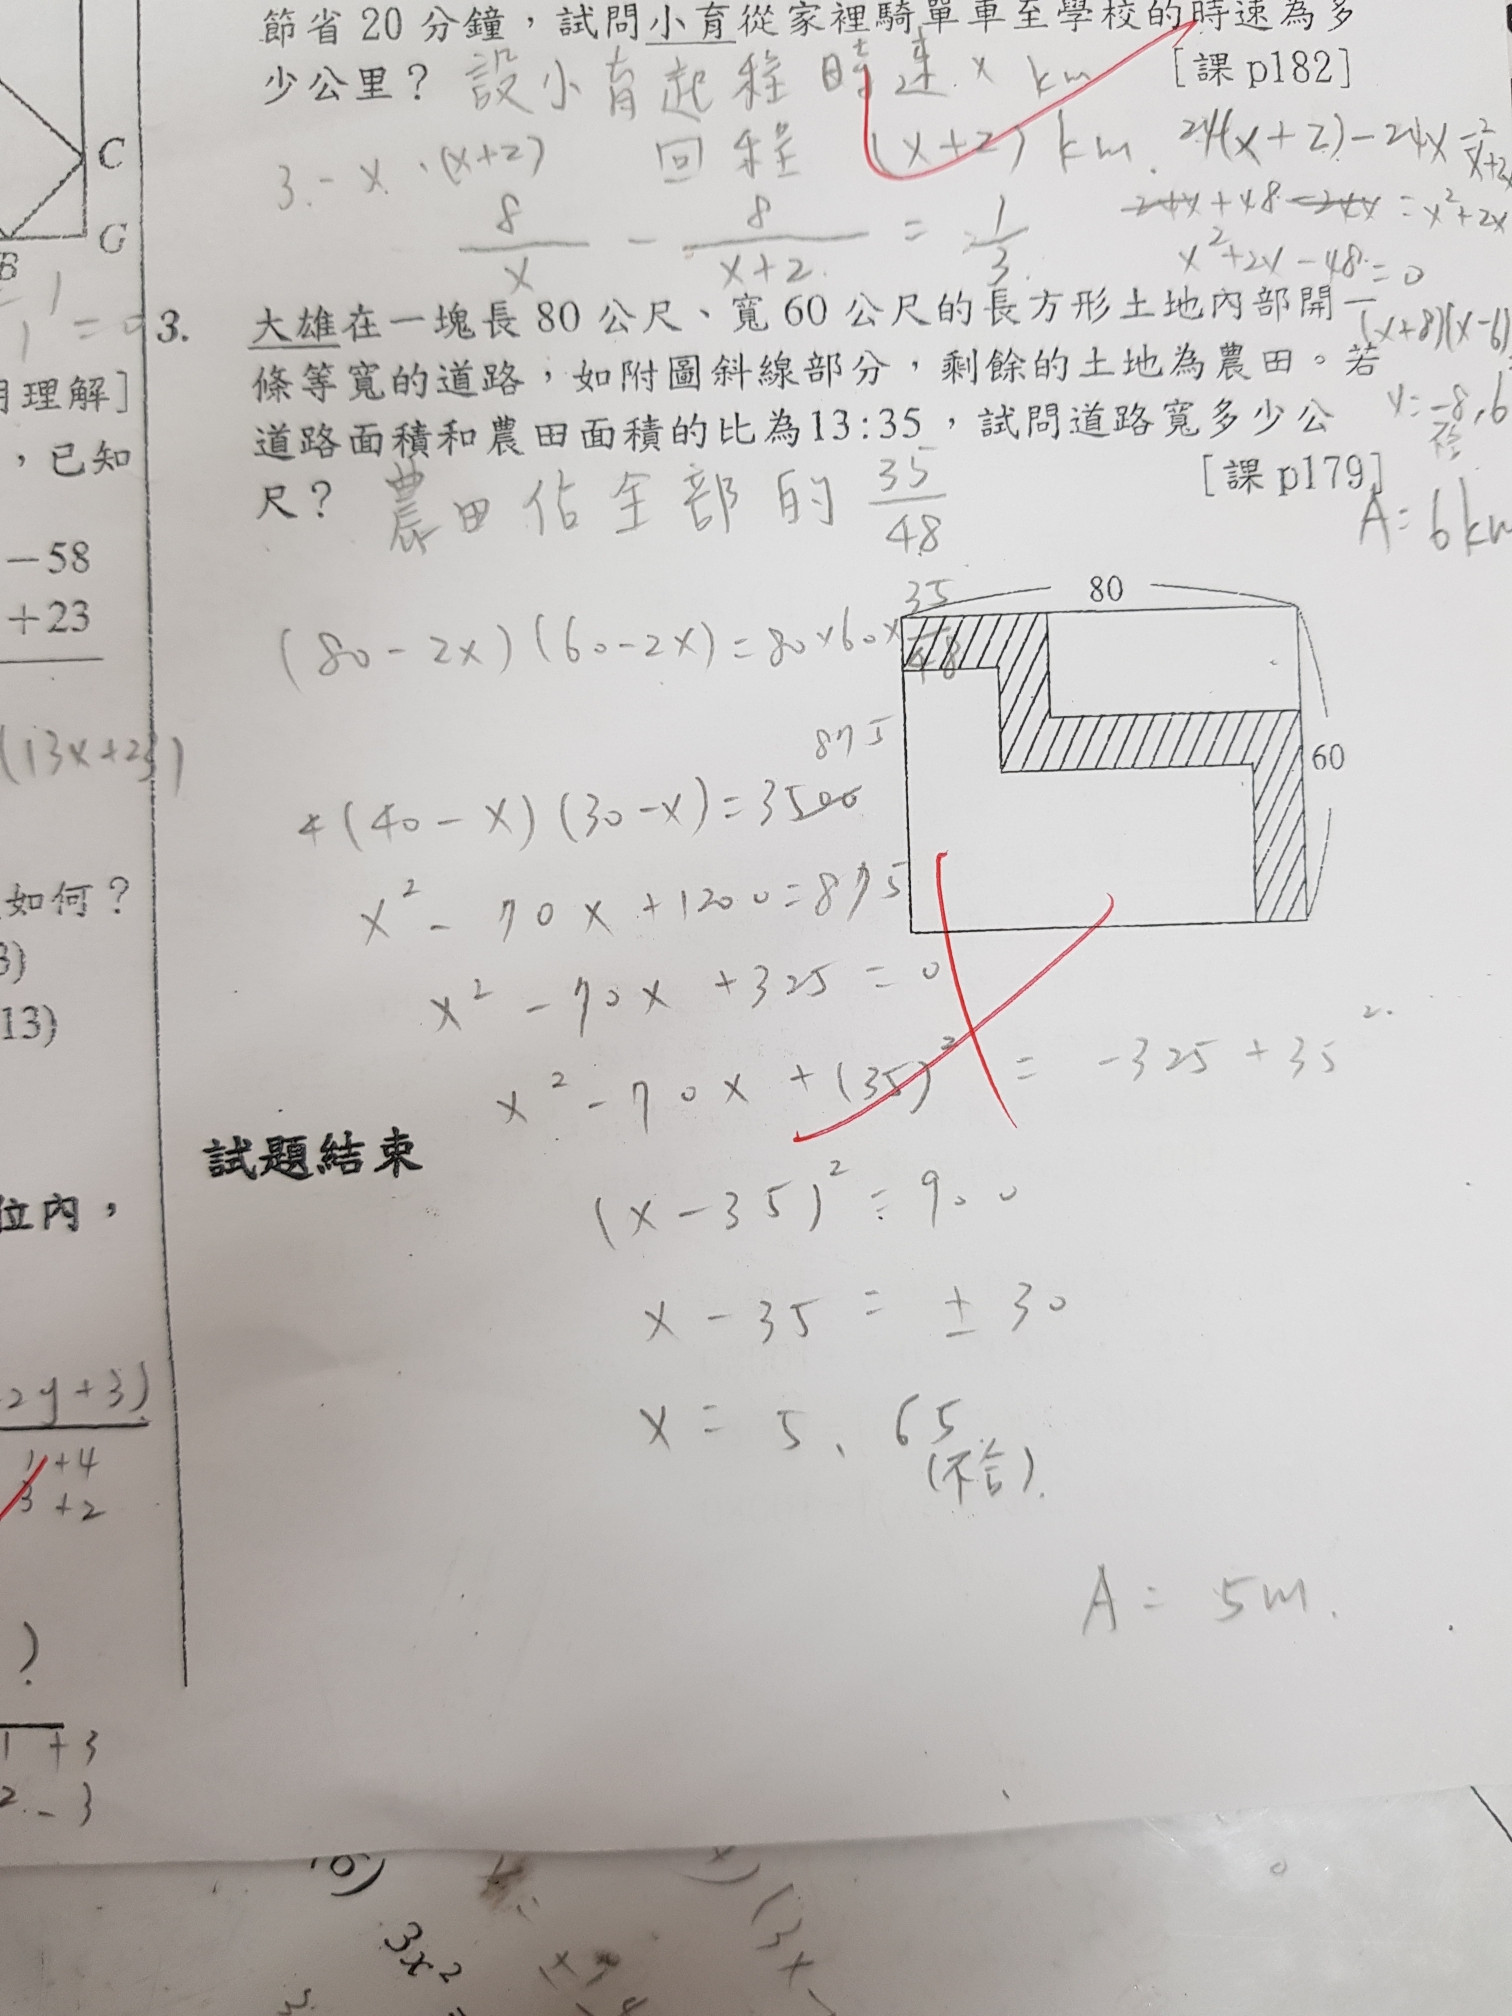 節省20分鐘，試問小育從家裡騎單車至學校的時速為多
少公里？ [課p182]
設小育起程時速 x km
回程 (x+2) km.
3.-x.(x+2)
8/x - 8/x+2. = 1/3.
24(x+2)-24x
24x+48-24x=x²+2x
x²+2x-48=0
(x+8)(x-6)
x=-8,6
A=6k
3. 大雄在一塊長80公尺、寬60公尺的長方形土地內部開一
條等寬的道路，如附圖斜線部分，剩餘的土地為農田。若
道路面積和農田面積的比為13:35，試問道路寬多少公
尺？ [課p179]
農田佔全部的 35/48
(80-2x)(60-2x)=80×60×35/48
875
4(40-x)(30-x)=3500
x²-70x+1200=875
x²-70x+325=0
x²-70x+(35)²=-325+35²
(x-35)²=900
x-35=±30
x=5、65
(不合).
A=5m.
80
60
試題結束
C
G
B
理解]
，已知
-58
+23
(13x+25)
如何？
3)
13)
位內，
2y+3)
1+4
3+2
)
1+3
2-3
3x²